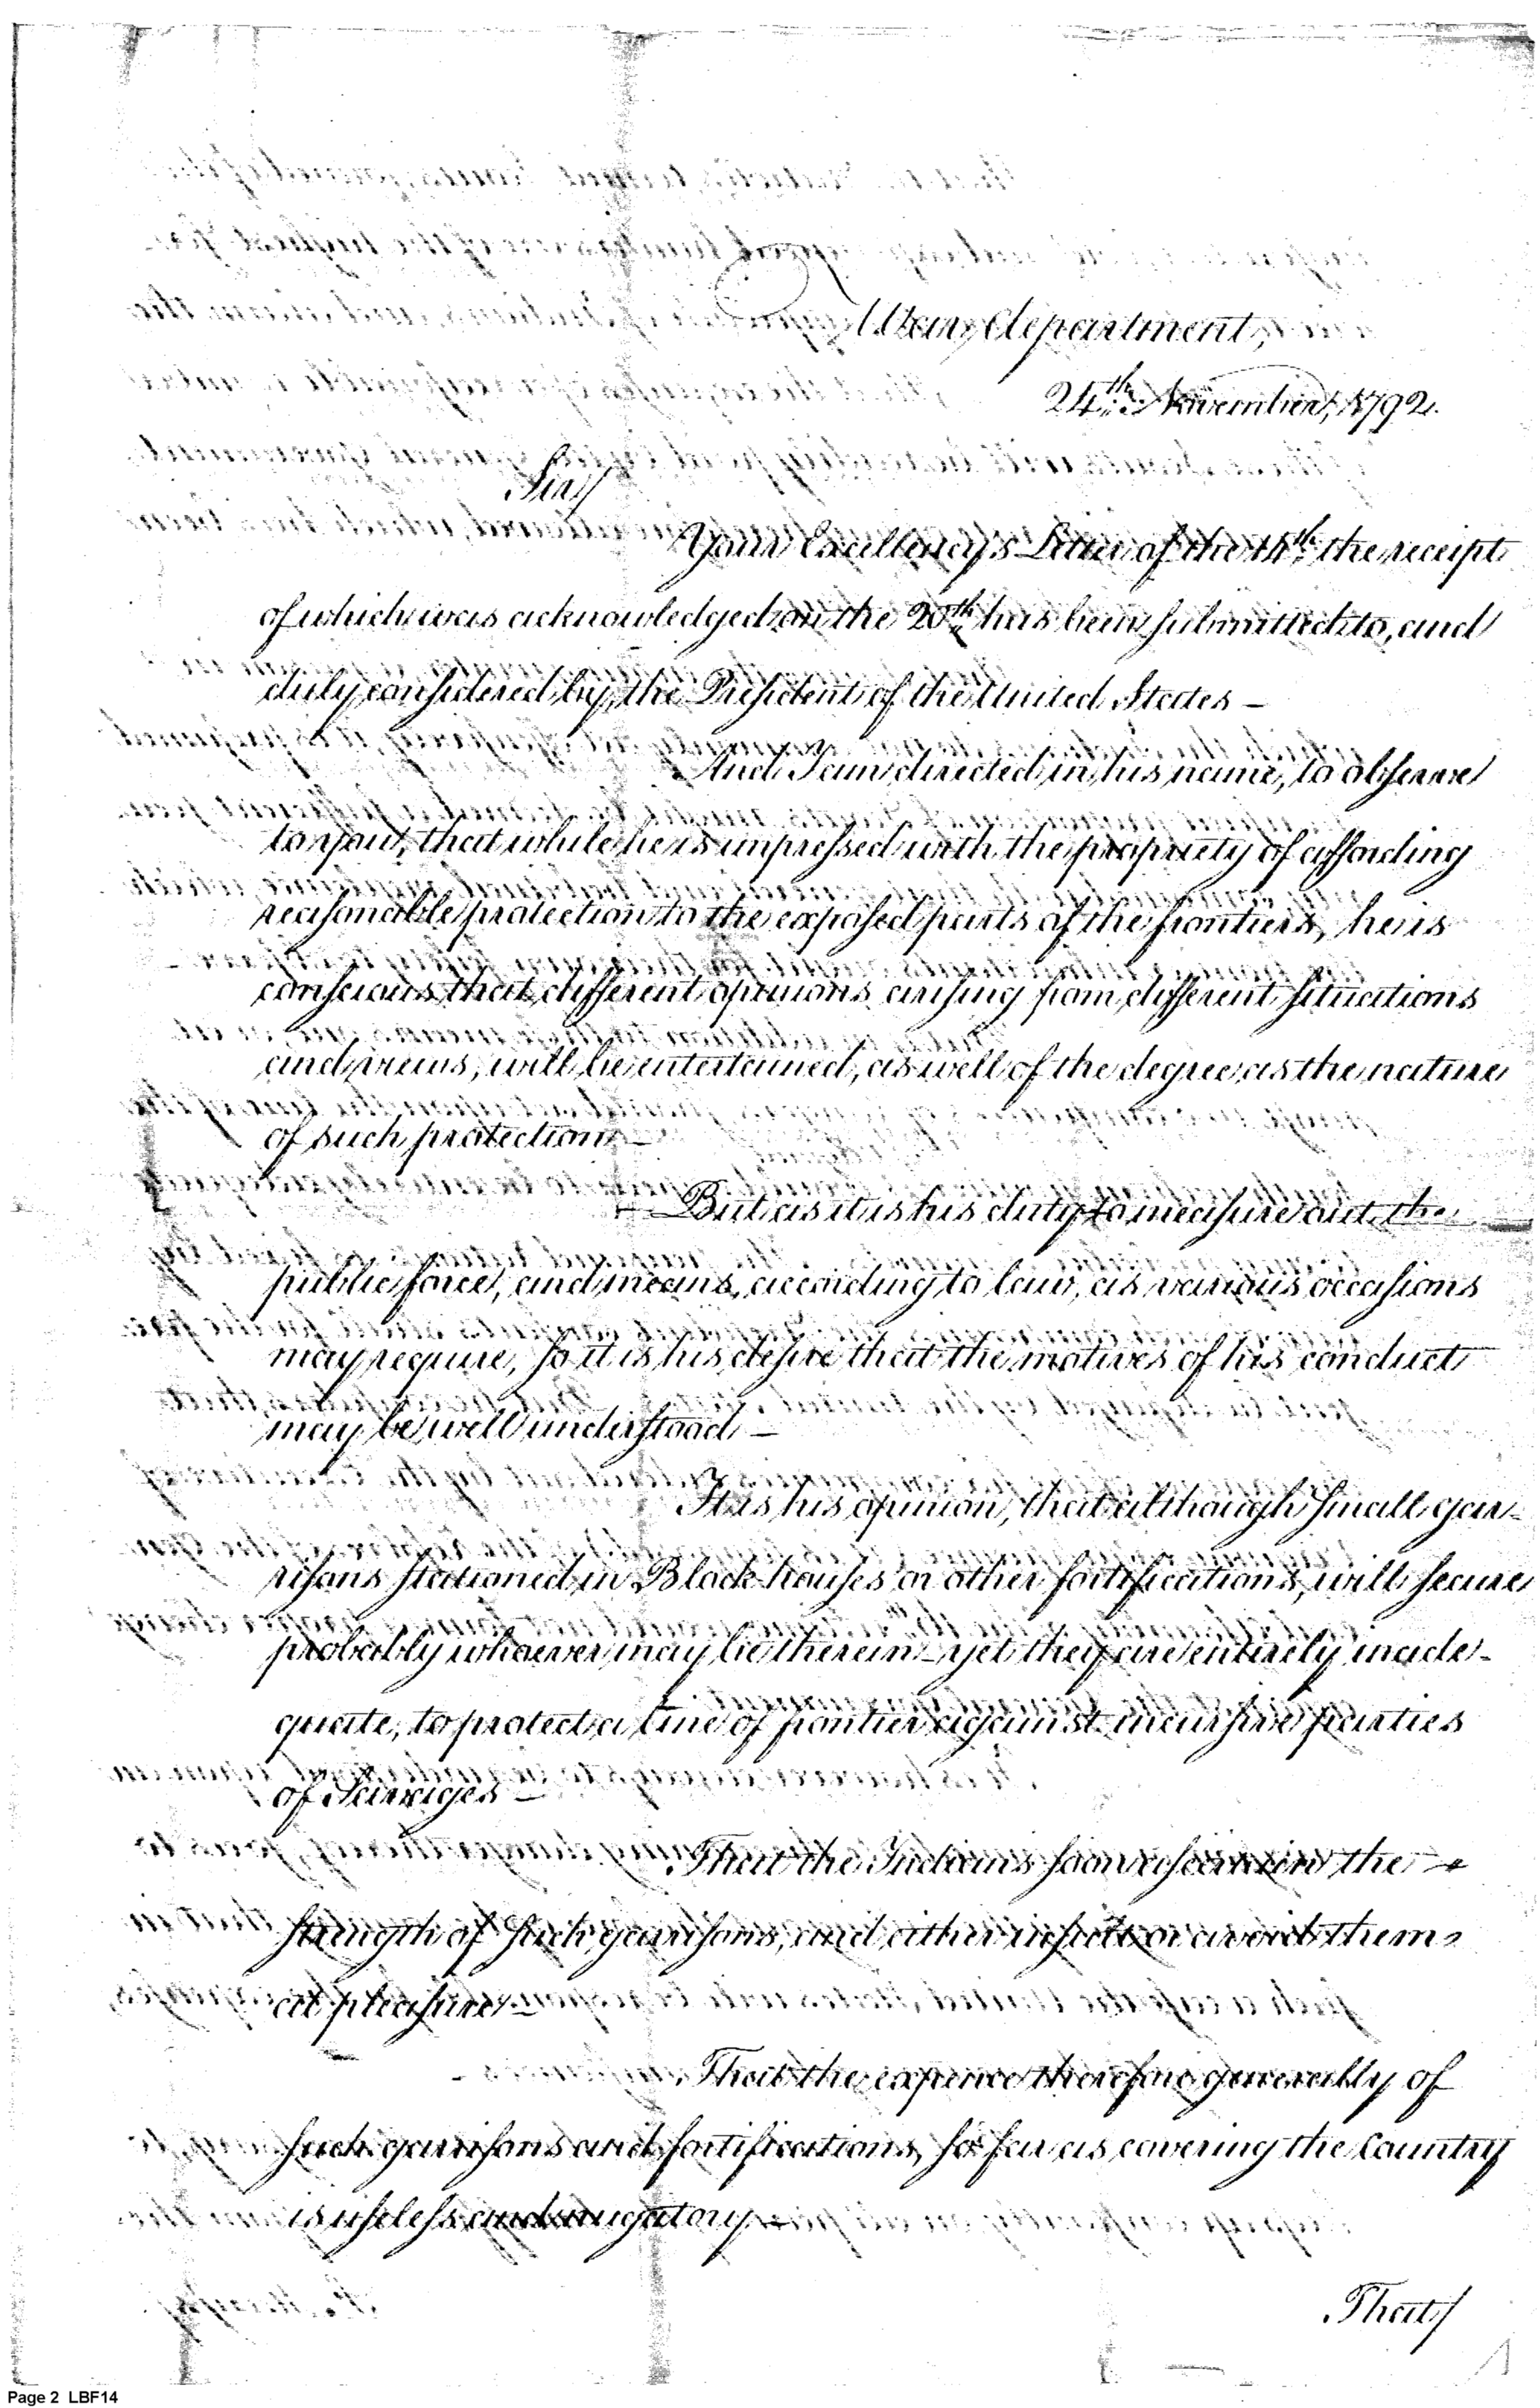 War department,
24th November, 1792.
Sir,
Your Excellency's Letter of the 14th the receipt
of which was acknowledged on the 20th has been submitted to, and
duly considered by, the President of the United States –
And I am directed in his name, to observe
to you, that while he is impressed with the propriety of affording
reasonable protection to the exposed parts of the frontiers, he is
conscious that different opinions arising from different situations
and views, will be entertained, as well of the degree, as the nature
of such protection –
But as it is his duty to measure out the
public force, and means, according to law, as various occasions
may require, so it is his desire that the motives of his conduct
may be well understood –
It is his opinion, that although small gar-
risons stationed in Block houses or other fortifications, will secure
probably whoever may be therein – yet they are entirely inade-
quate, to protect a line of frontier against incursive parties
of Savages –
That the Indians soon ascertain the
strength of such garrisons, and either insult or avoid them
at pleasure –
That the expence therefore generally of
such garrisons and fortifications, so far as covering the Country
is useless and nugatory –
That/
Page 2 LBF14